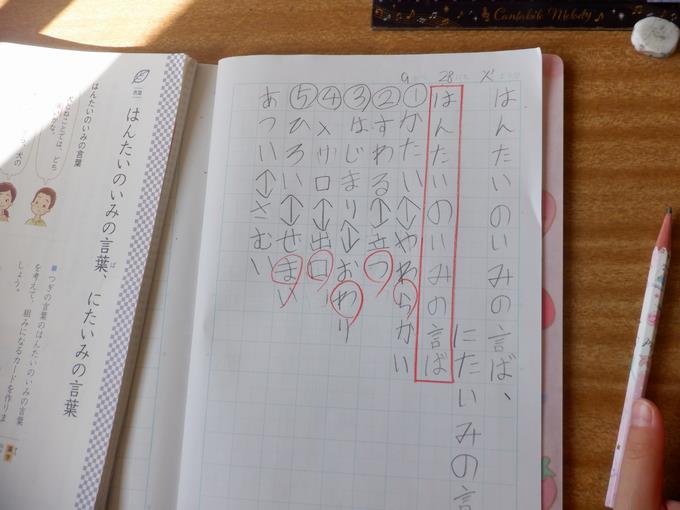 Cantabile Melody
9 28
はんたいのいみの言ば、
にたいみの言
はんたいのいみの言ば
①かたい↔やわらかい
②すわる↔立つ
③はじまり↔おわり
④入り口↔出口
⑤ひろい↔せまい
あつい↔さむい
言葉
はんたいのいみの言葉、にたいみの言葉
ば
はんたいのいみの言葉
犬の
■つぎの言葉のはんたいのいみの言葉
を考えて、組みになるカードを作りま
しょう。